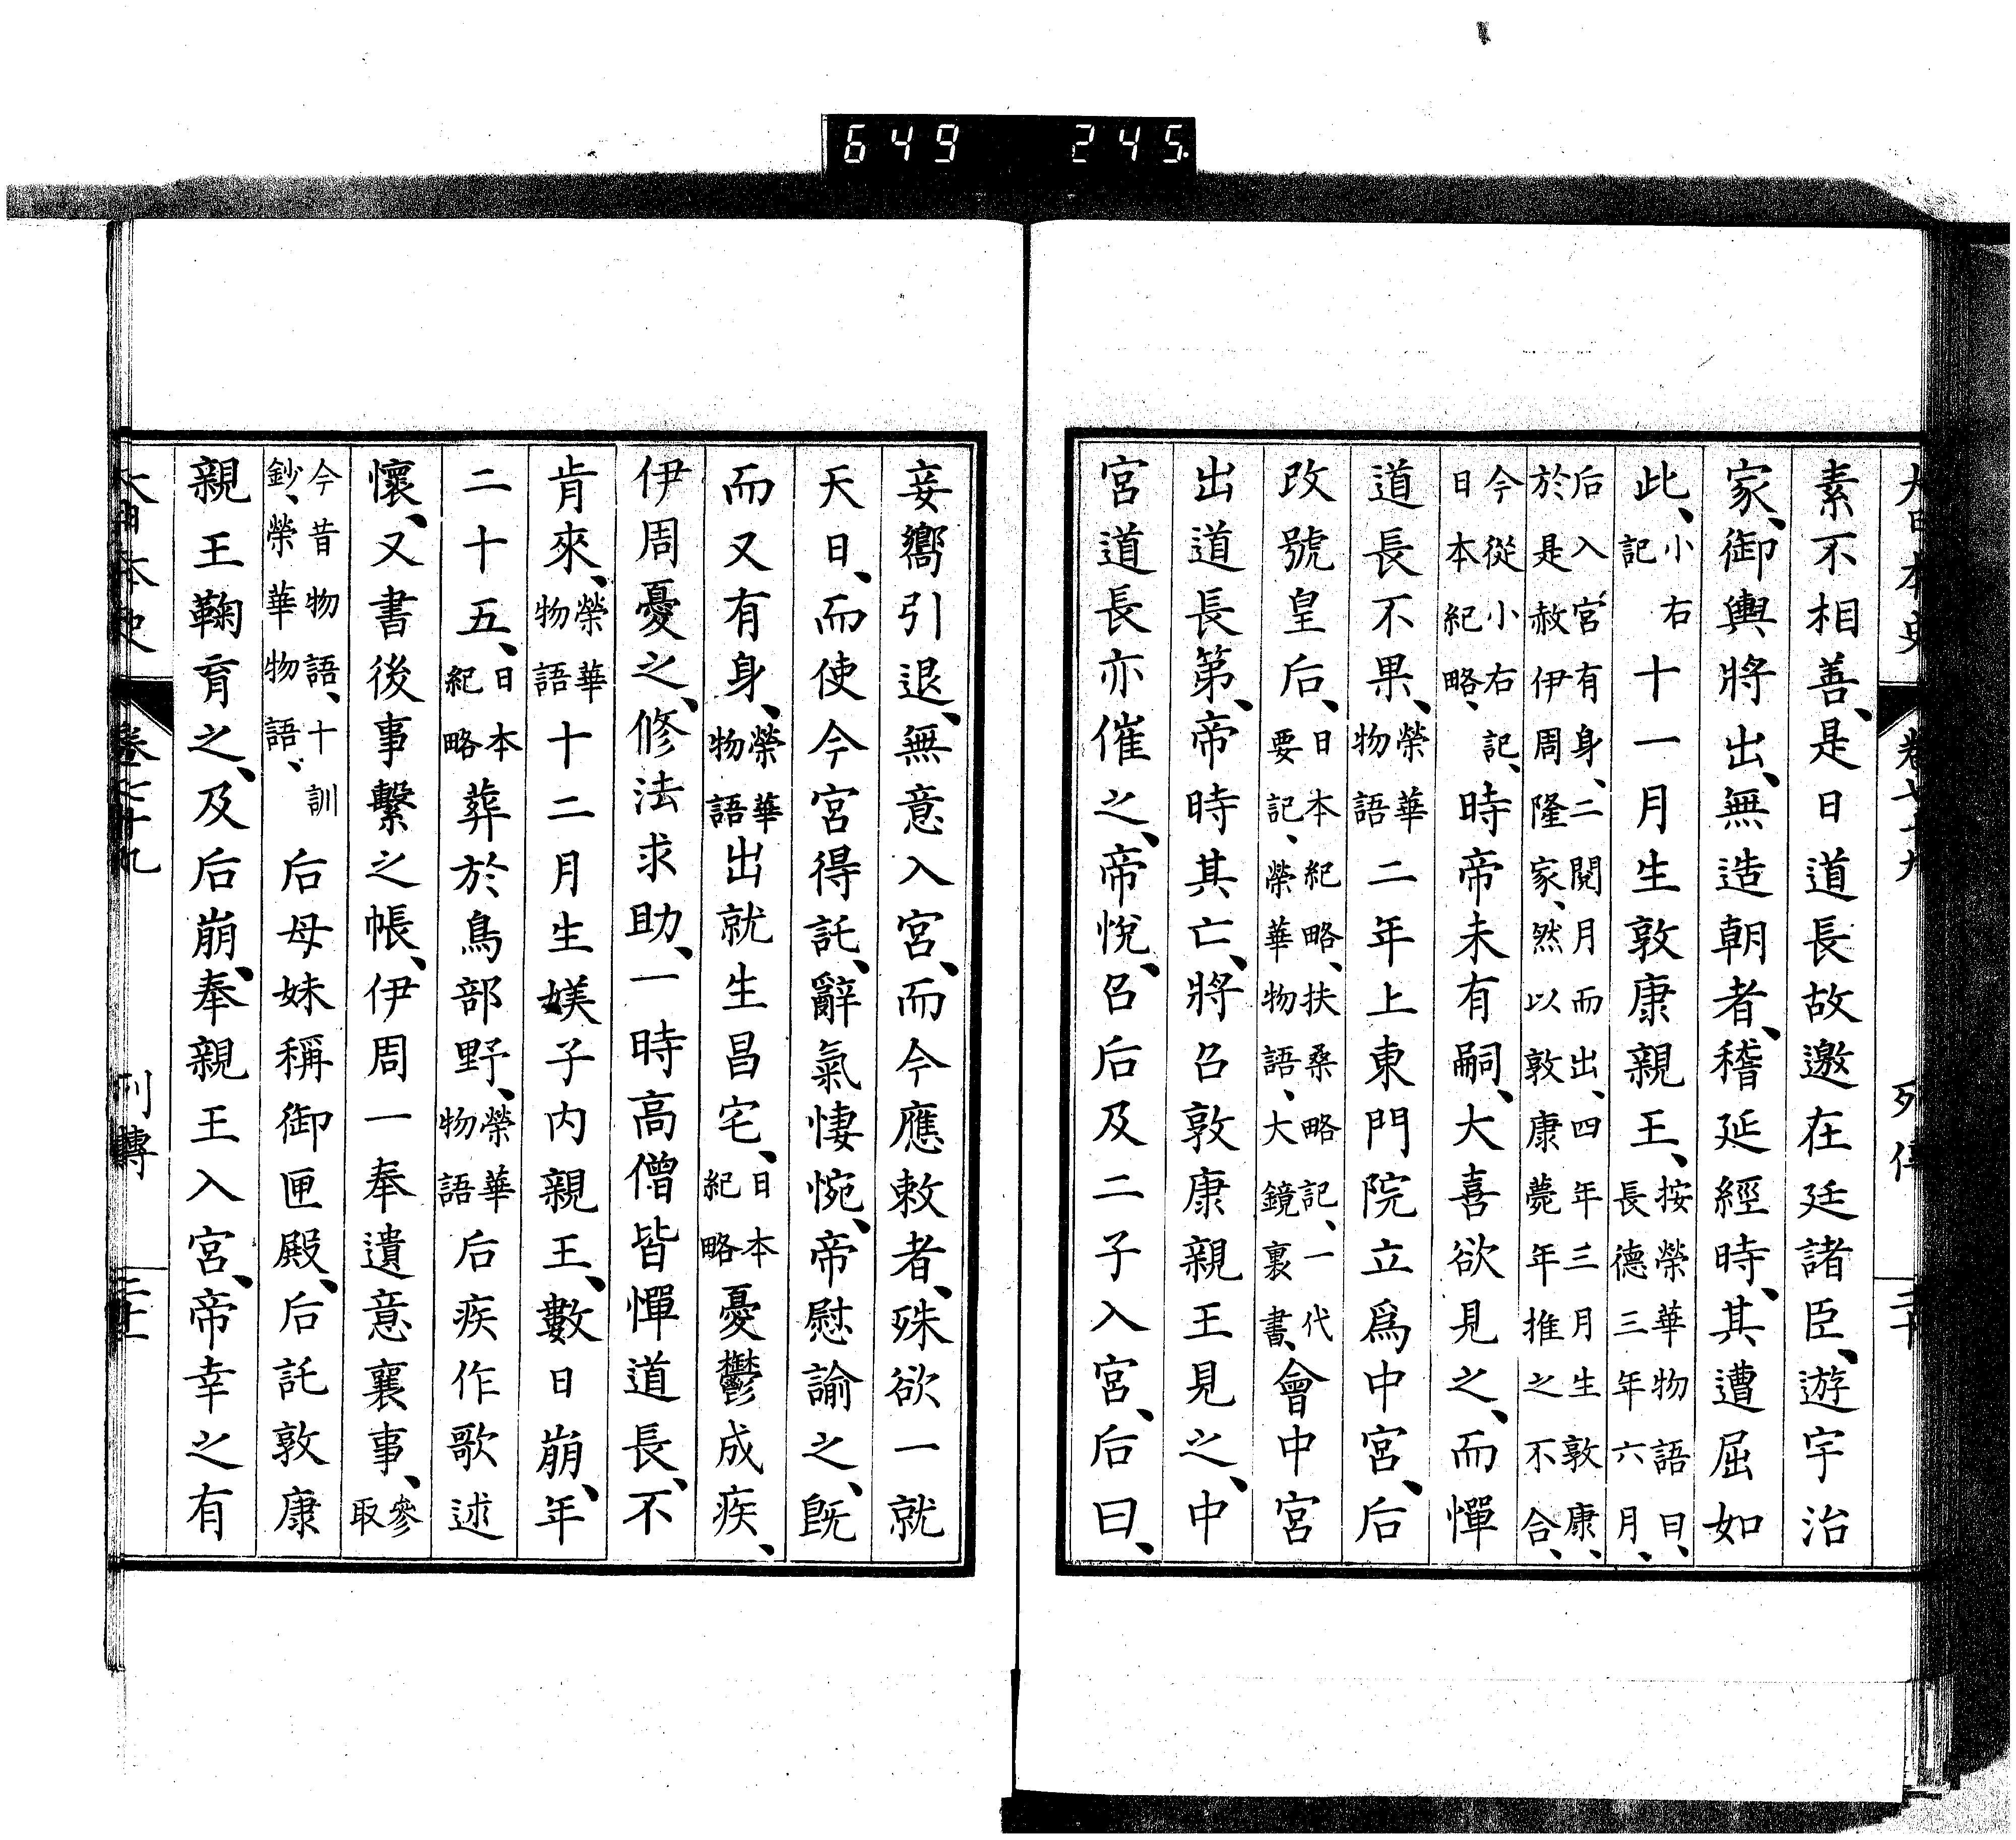 649 245
大日本史 卷七十九 列傳 三十
素不相善、是日道長故邀在廷諸臣、遊宇治
家、御輿將出、無造朝者、稽延經時、其遭屈如
此、小右記十一月生敦康親王、按榮華物語曰、長德三年六月、
后入宮有身、二閱月而出、四年三月生敦康、於是赦伊周隆家、然以敦康薨年推之不合、
今從小右記、日本紀略、時帝未有嗣、大喜欲見之、而憚
道長不果、榮華物語二年上東門院立爲中宮、后
改號皇后、日本紀略、扶桑略記、一代要記、榮華物語、大鏡裏書、會中宮
出道長第、帝時其亡、將召敦康親王見之、中
宮道長亦催之、帝悅、召后及二子入宮、后曰、
妾嚮引退、無意入宮、而今應敕者、殊欲一就
天日、而使今宮得託、辭氣悽惋、帝慰諭之、旣
而又有身、榮華物語出就生昌宅、日本紀略憂鬱成疾、
伊周憂之、修法求助、一時高僧皆憚道長、不
肯來、榮華物語十二月生媄子内親王、數日崩、年
二十五、日本紀略葬於鳥部野、榮華物語后疾作歌述
懷、又書後事繫之帳、伊周一奉遺意襄事、參取
今昔物語、十訓鈔、榮華物語、后母妹稱御匣殿、后託敦康
親王鞠育之、及后崩、奉親王入宮、帝幸之有
大日本史 卷七十九 列傳 三十一